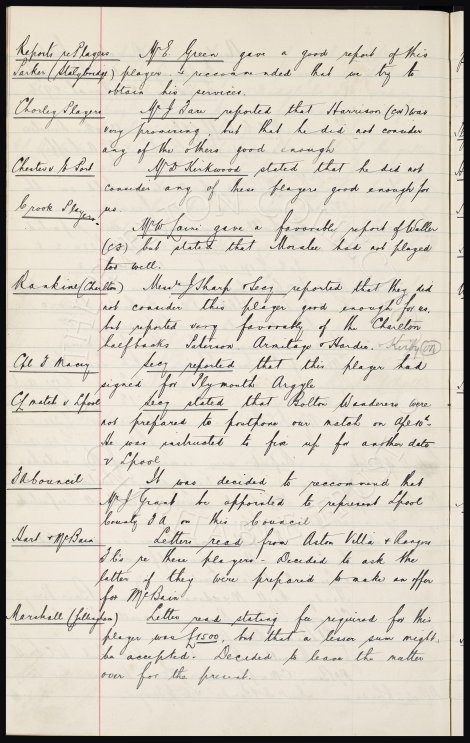 Reports re Players Mr E. Green gave a good report of this
Parker (Stalybridge) player & reccommended that we try to
obtain his services.
Chorley Players Mr J Fare reported that Harrison (CH) was
very promising, but that he did not consider
any of the others good enough
Chester v E. Port Mr D Kirkwood stated that he did not
consider any of these players good enough for
us.
Crook Players
Mr W Caini gave a favorable report of Waller
(CS) but stated that Moralee had not played
too well.
Rankine (Charlton) Messrs J Sharp & Secy reported that they did
not consider this player good enough for us,
but reported very favorably of the Charlton
halfbacks Paterson Armitage & Hardie. & Kirby (CH)
Cpl T Macey Secy reported that this player had
signed for Plymouth Argyle
CL match v Lpool Secy stated that Bolton Wanderers were
not prepared to postpone our match on Apl 18th.
He was instructed to fix up for another date
v Lpool
FA Council It was decided to reccommend that
Mr J Grant be appointed to represent Lpool
County FA on this Council
Hart & McBain Letters read from Aston Villa & Rangers
FCs re these players - Decided to ask the
latter if they were prepared to make an offer
for McBain
Marshall (Gillingham) Letter read stating fee required for this
player was £1500, but that a lesser sum might
be accepted. Decided to leave the matter
over for the present.